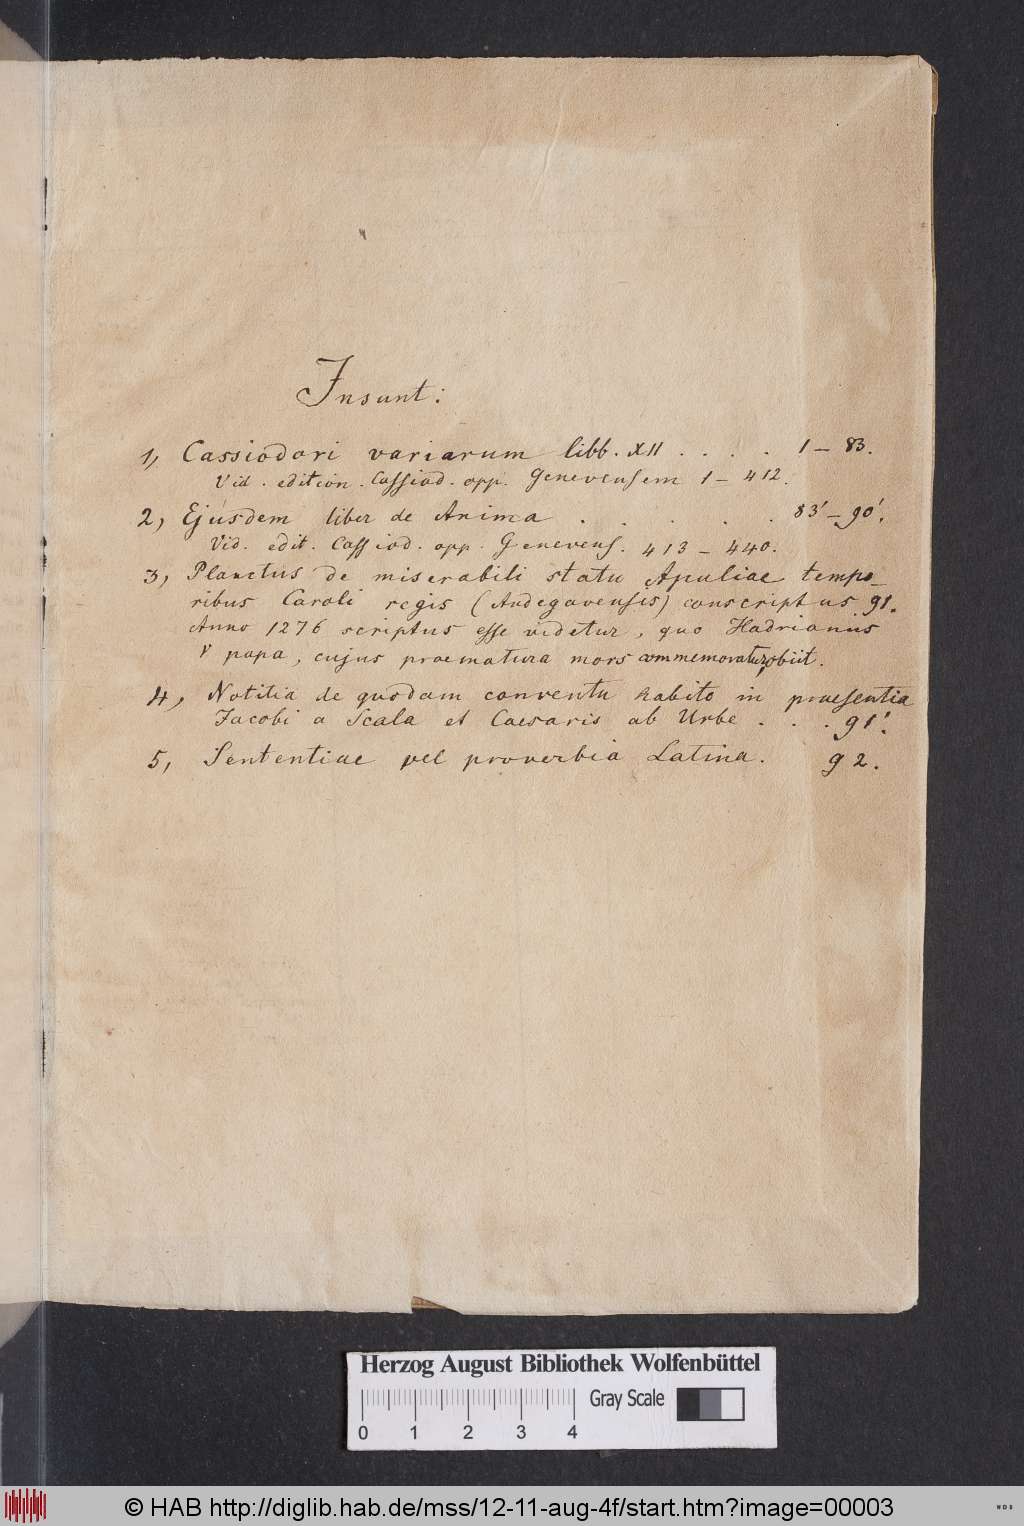 Insunt:
1, Cassiodori variarum libb. XII . . . . 1 – 83.
Vid. edition. Cassiod. opp. Genevensem 1 – 412.
2, Ejusdem liber de Anima . . . . . 83' – 90'.
Vid. edit. Cassiod. opp. Genevens. 413 – 440.
3, Planctus de miserabili statu Apuliae tempo-
ribus Caroli regis (Andegavensis) conscriptus. 91.
Anno 1276 scriptus esse videtur, quo Hadrianus
V papa, cujus praematura mors commemoratur, obiit.
4, Notitia de quodam conventu habito in praesentia
Jacobi a Scala et Caesaris ab Urbe . . . 91'.
5, Sententiae vel proverbia Latina. 92.
Herzog August Bibliothek Wolfenbüttel
Gray Scale
0 1 2 3 4
© HAB http://diglib.hab.de/mss/12-11-aug-4f/start.htm?image=00003